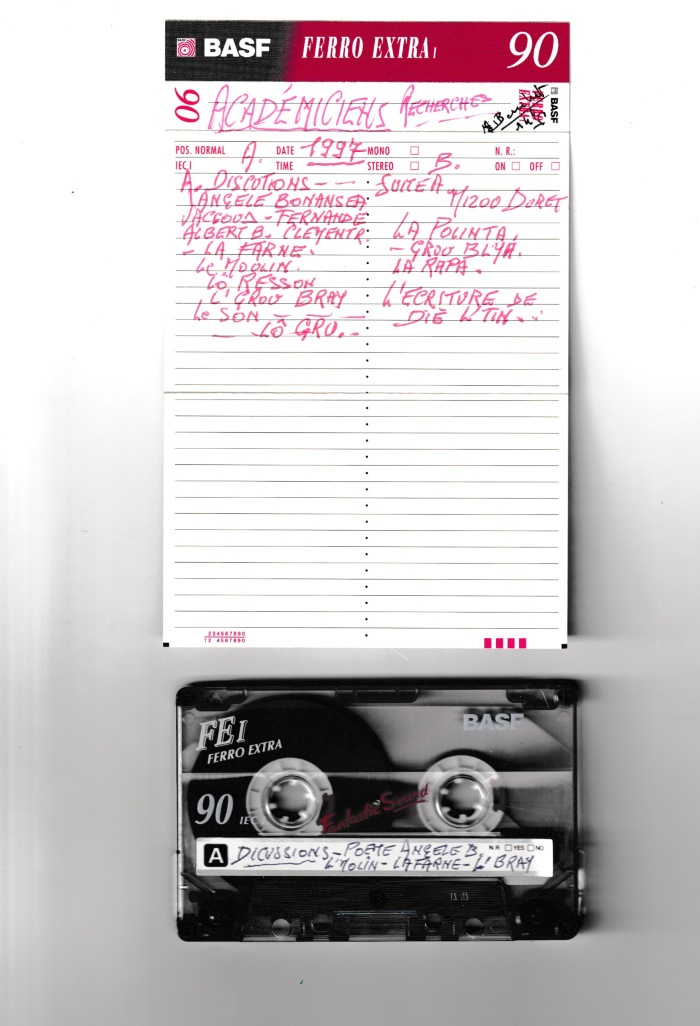 BASF FERRO EXTRA I 90
90 ACADÉMICIENS RECHERCHES BASF
POS. NORMAL A. DATE 1997 MONO N. R.:
IEC I TIME STEREO B. ON OFF
A. DISCUTIONS - —
ANGELE BONANSEA
JACCOUD - FERNANDE
ALBERT B. CLEMENTR.
- LA FARNE.
Le MOOLIN.
Lo RESSON
L'GROU BRAY
Le SON — — —
— LÔ GRU. -
SUITE A
T/1200 DURET
LA POLINTA,
- GROU BLYA.
LA RAPA.
L'ECRITURE DE
DIÉ L'TIN. . .
234567890
12 4567890
FE I
FERRO EXTRA
BASF
90 IEC I
Fantastic Sound
A DICUSSIONS - POÉTE ANGELE B. N.R YES NO
L'MOLIN - LA FARNE - L'BRAY